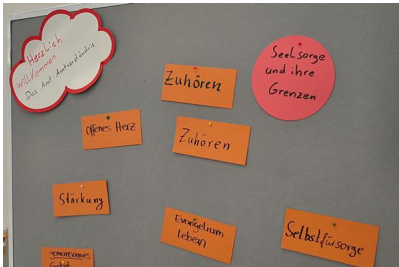 Herzlich
Willkommen
Das Amt. Amtverständnis
Zuhören
Seelsorge
und ihre
Grenzen
offenes Herz
Zuhören
Stärkung
Evangelium
leben
Selbstfürsorge
Gebet